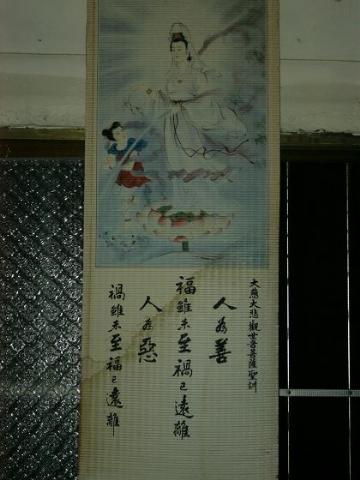 大慈大悲觀世音菩薩聖訓
人為善
福雖未至禍已遠離
人為惡
禍雖未至福已遠離